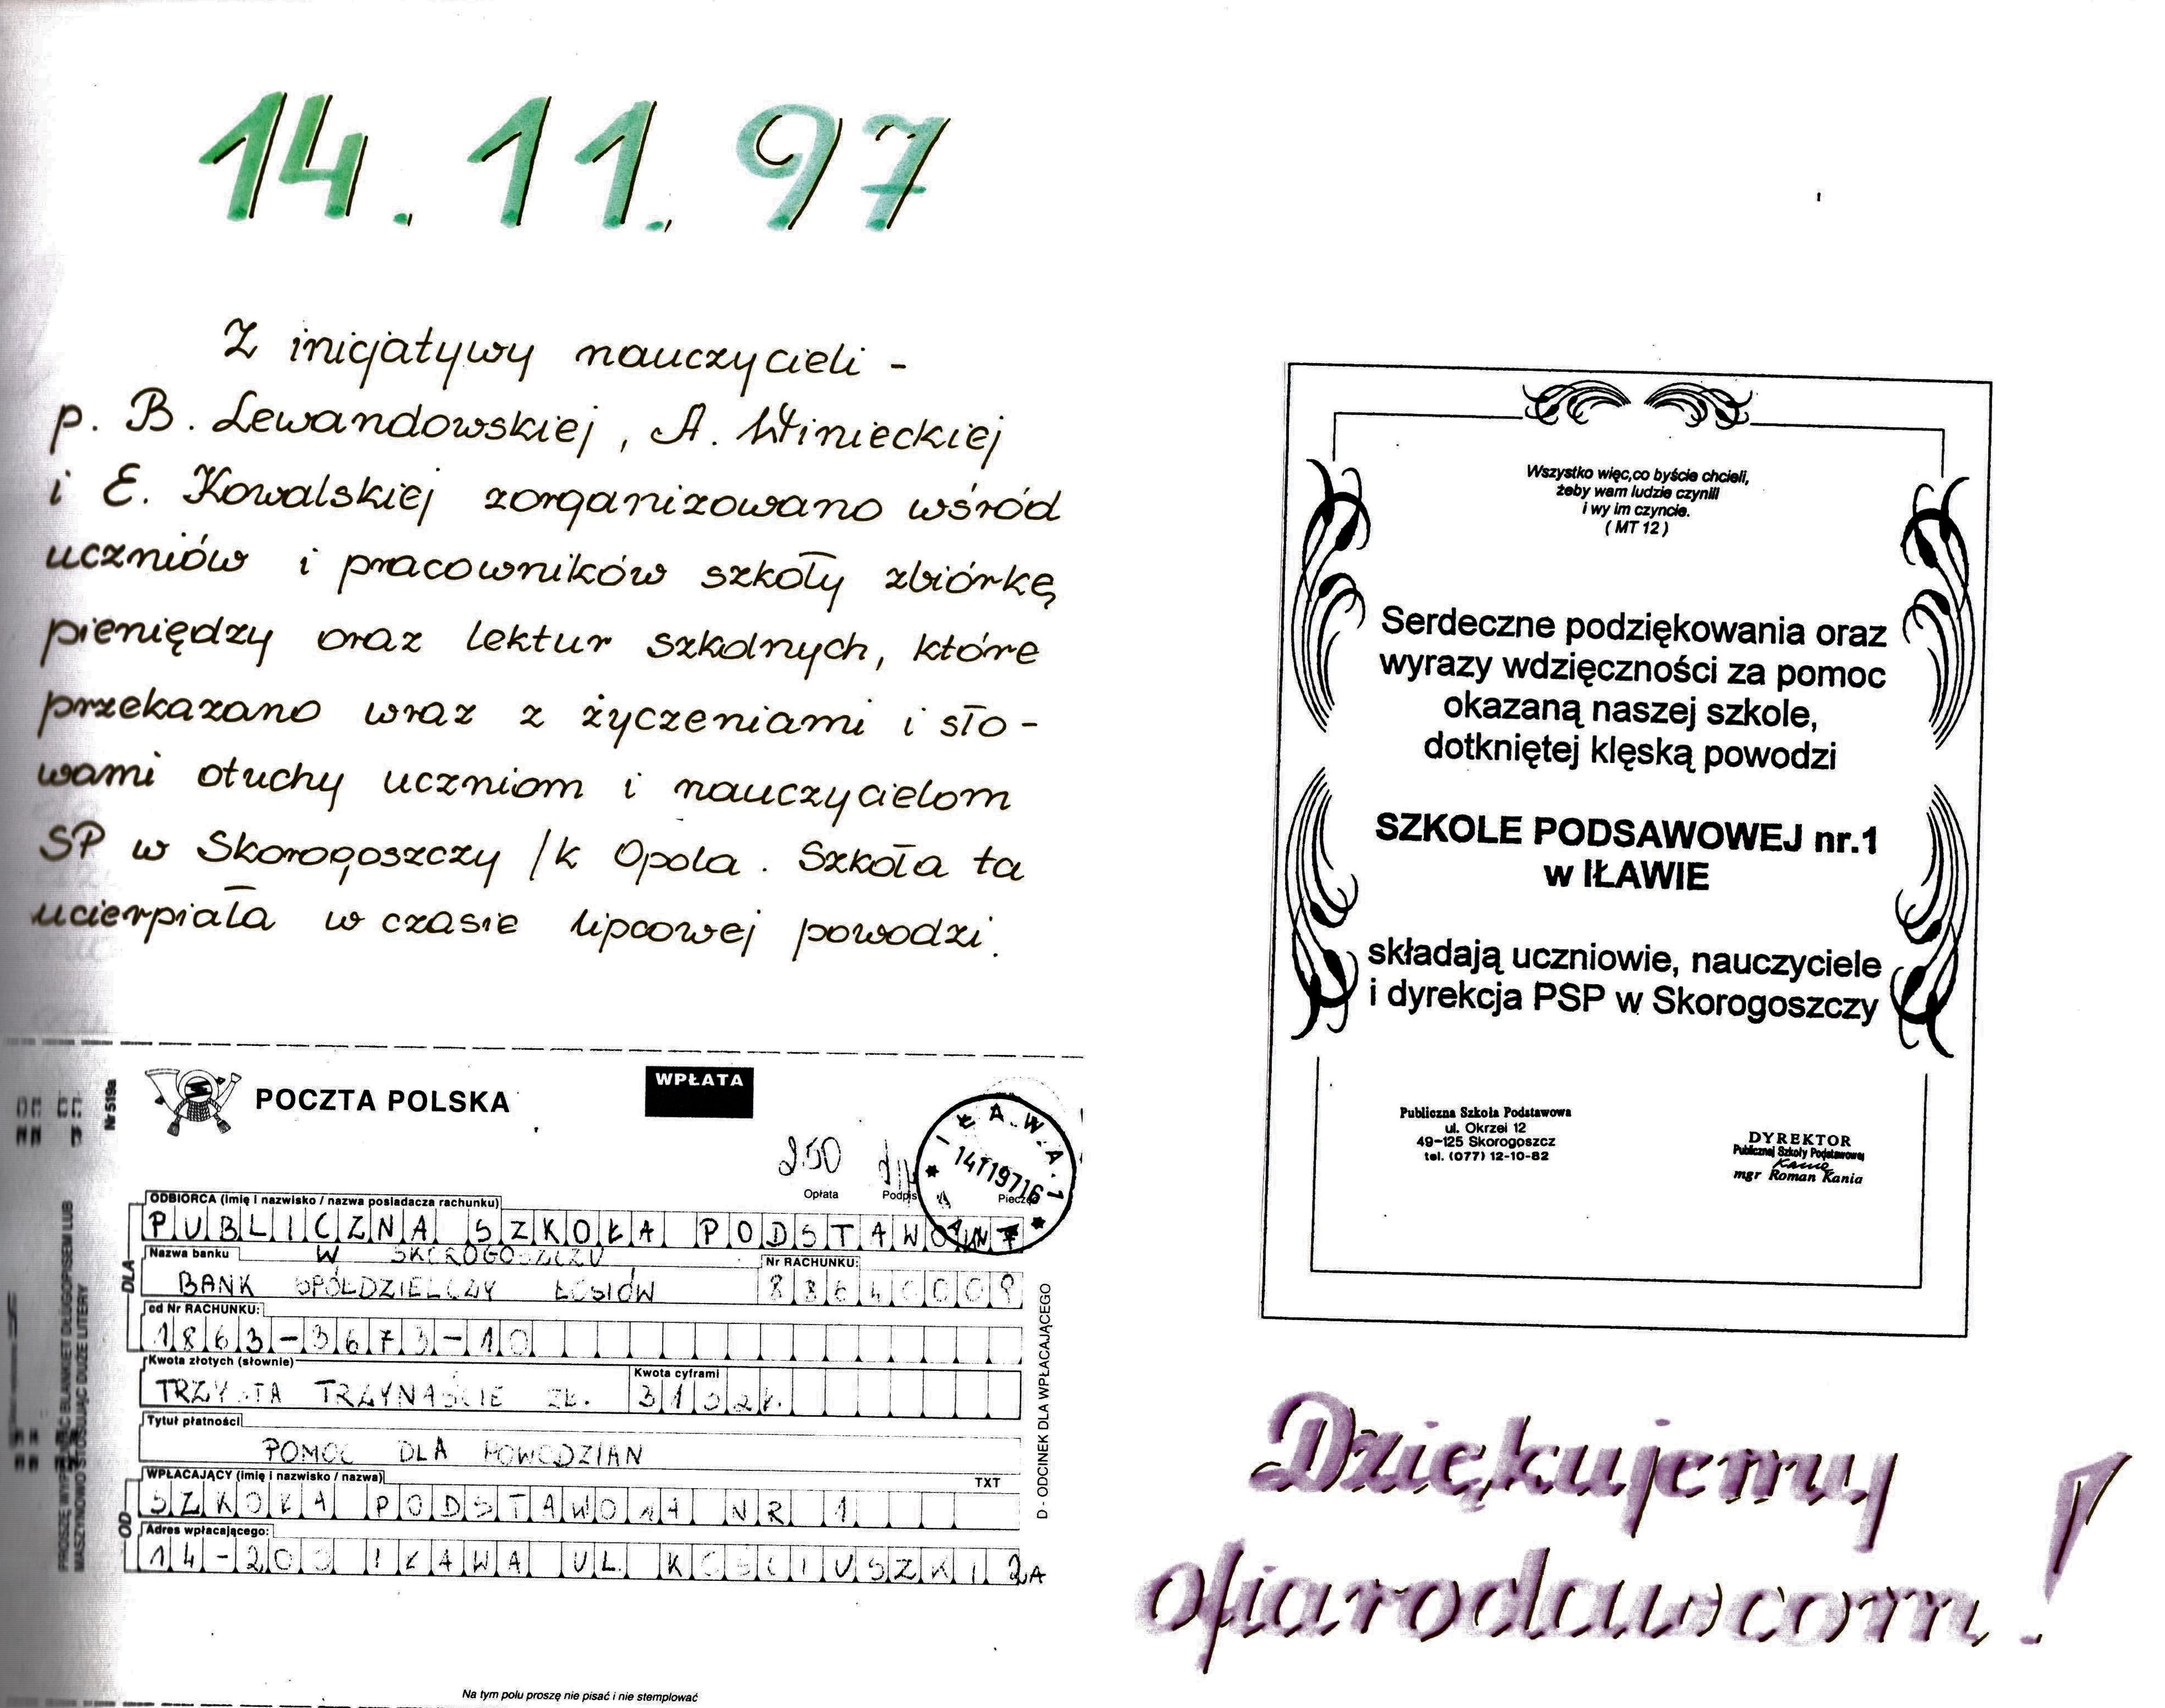 14.11.97
Z inicjatywy nauczycieli -
p. B. Lewandowskiej, A. Winieckiej
i E. Kowalskiej zorganizowano wśród
uczniów i pracowników szkoły zbiórkę
pieniędzy oraz lektur szkolnych, które
przekazano wraz z życzeniami i sło-
wami otuchy uczniom i nauczycielom
SP w Skorogoszczy /k Opola. Szkoła ta
ucierpiała w czasie lipcowej powodzi.
Nr 519a
POCZTA POLSKA
WPŁATA
2.50
Opłata
Podpis
Pieczęć
IŁAWA 1
ODBIORCA (imię i nazwisko / nazwa posiadacza rachunku)
PUBLICZNA SZKOŁA PODSTAWOWA
W SKOROGOSZCZU
Nazwa banku
BANK SPÓŁDZIELCZY ŁOSIÓW
Nr RACHUNKU:
DLA
cd Nr RACHUNKU:
1863-3673-10
Kwota złotych (słownie)
TRZYSTA TRZYNAŚCIE ZŁ.
Kwota cyframi
313 zł.
Tytuł płatności
POMOC DLA POWODZIAN
WPŁACAJĄCY (imię i nazwisko / nazwa)
TXT
SZKOŁA PODSTAWOWA NR 1
OD
Adres wpłacającego:
14-200 IŁAWA UL. KOŚCIUSZKI 2A
D - ODCINEK DLA WPŁACAJĄCEGO
Na tym polu proszę nie pisać i nie stemplować
Wszystko więc,co byście chcieli,
żeby wam ludzie czynili
i wy im czyncie.
( MT 12 )
Serdeczne podziękowania oraz
wyrazy wdzięczności za pomoc
okazaną naszej szkole,
dotkniętej klęską powodzi
SZKOLE PODSAWOWEJ nr.1
w IŁAWIE
składają uczniowie, nauczyciele
i dyrekcja PSP w Skorogoszczy
Publiczna Szkoła Podstawowa
ul. Okrzei 12
49-125 Skorogoszcz
tel. (077) 12-10-82
DYREKTOR
Publicznej Szkoły Podstawowej
Kania
mgr Roman Kania
Dziękujemy
ofiarodawcom!